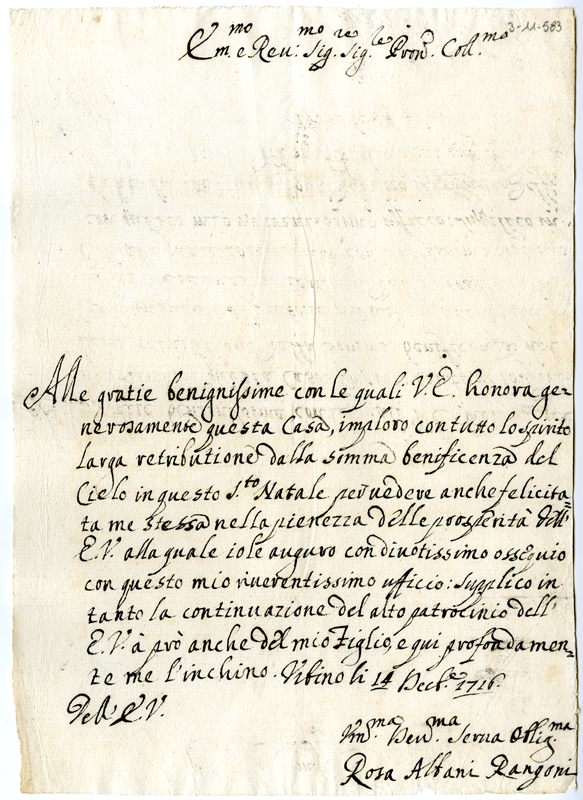 3-11-583
Em.mo e Reu.mo Sig.re Sig.le Pron. Coll.mo
Alle gratie benignissime con le quali V.E. honora ge-
nerosamente questa Casa, imploro con tutto lo spirito
larga retributione dalla somma beneficenza del
Cielo in questo S.to Natale per uedere anche felicita=
ta me stessa nella pienezza delle prosperità dell'
E.V. alla quale io le auguro con diuotissimo ossequio
con questo mio riuerentissimo ufficio: supplico in
tanto la continuazione del alto patrocinio dell'
E.V. à prò anche del mio Figlio, e qui profondamen-
te me l'inchino. Vrbino li 14 Decb.e 1716.
Dell' E.V.
Vm.ma Deu.ma Serua Oblig.ma
Rosa Albani Rangoni